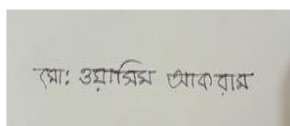 মো: ওয়াসিম আকরাম